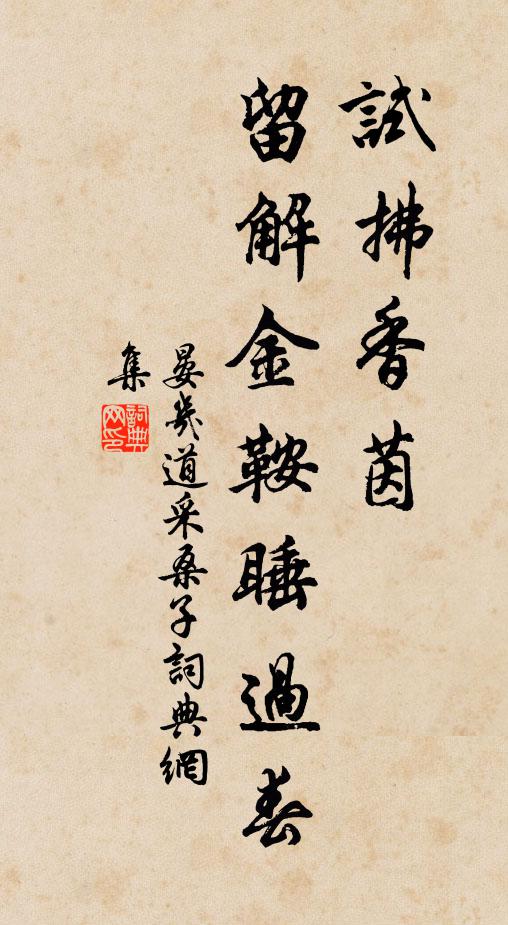 試拂香茵
留解金鞍睡過春
晏幾道采桑子詞典網
集
詞典
网印